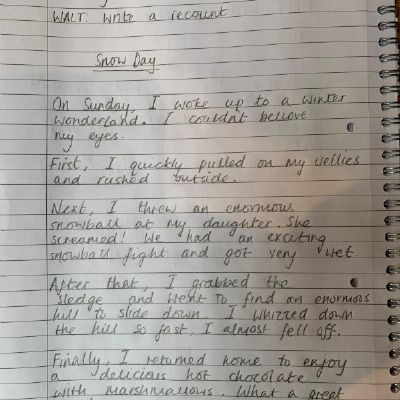 WALT: Write a recount
Snow Day
On Sunday, I woke up to a winter
wonderland. I couldnt believe
my eyes.
First, I quickly pulled on my wellies
and rushed outside.
Next, I threw an enormous
snowball at my daughter. She
screamed! We had an exciting
snowball fight and got very wet.
After that, I grabbed the
sledge and went to find an enormous
hill to slide down. I whizzed down
the hill so fast, I almost fell off.
Finally, I returned home to enjoy
a delicious hot chocolate
with marshmallows. What a great